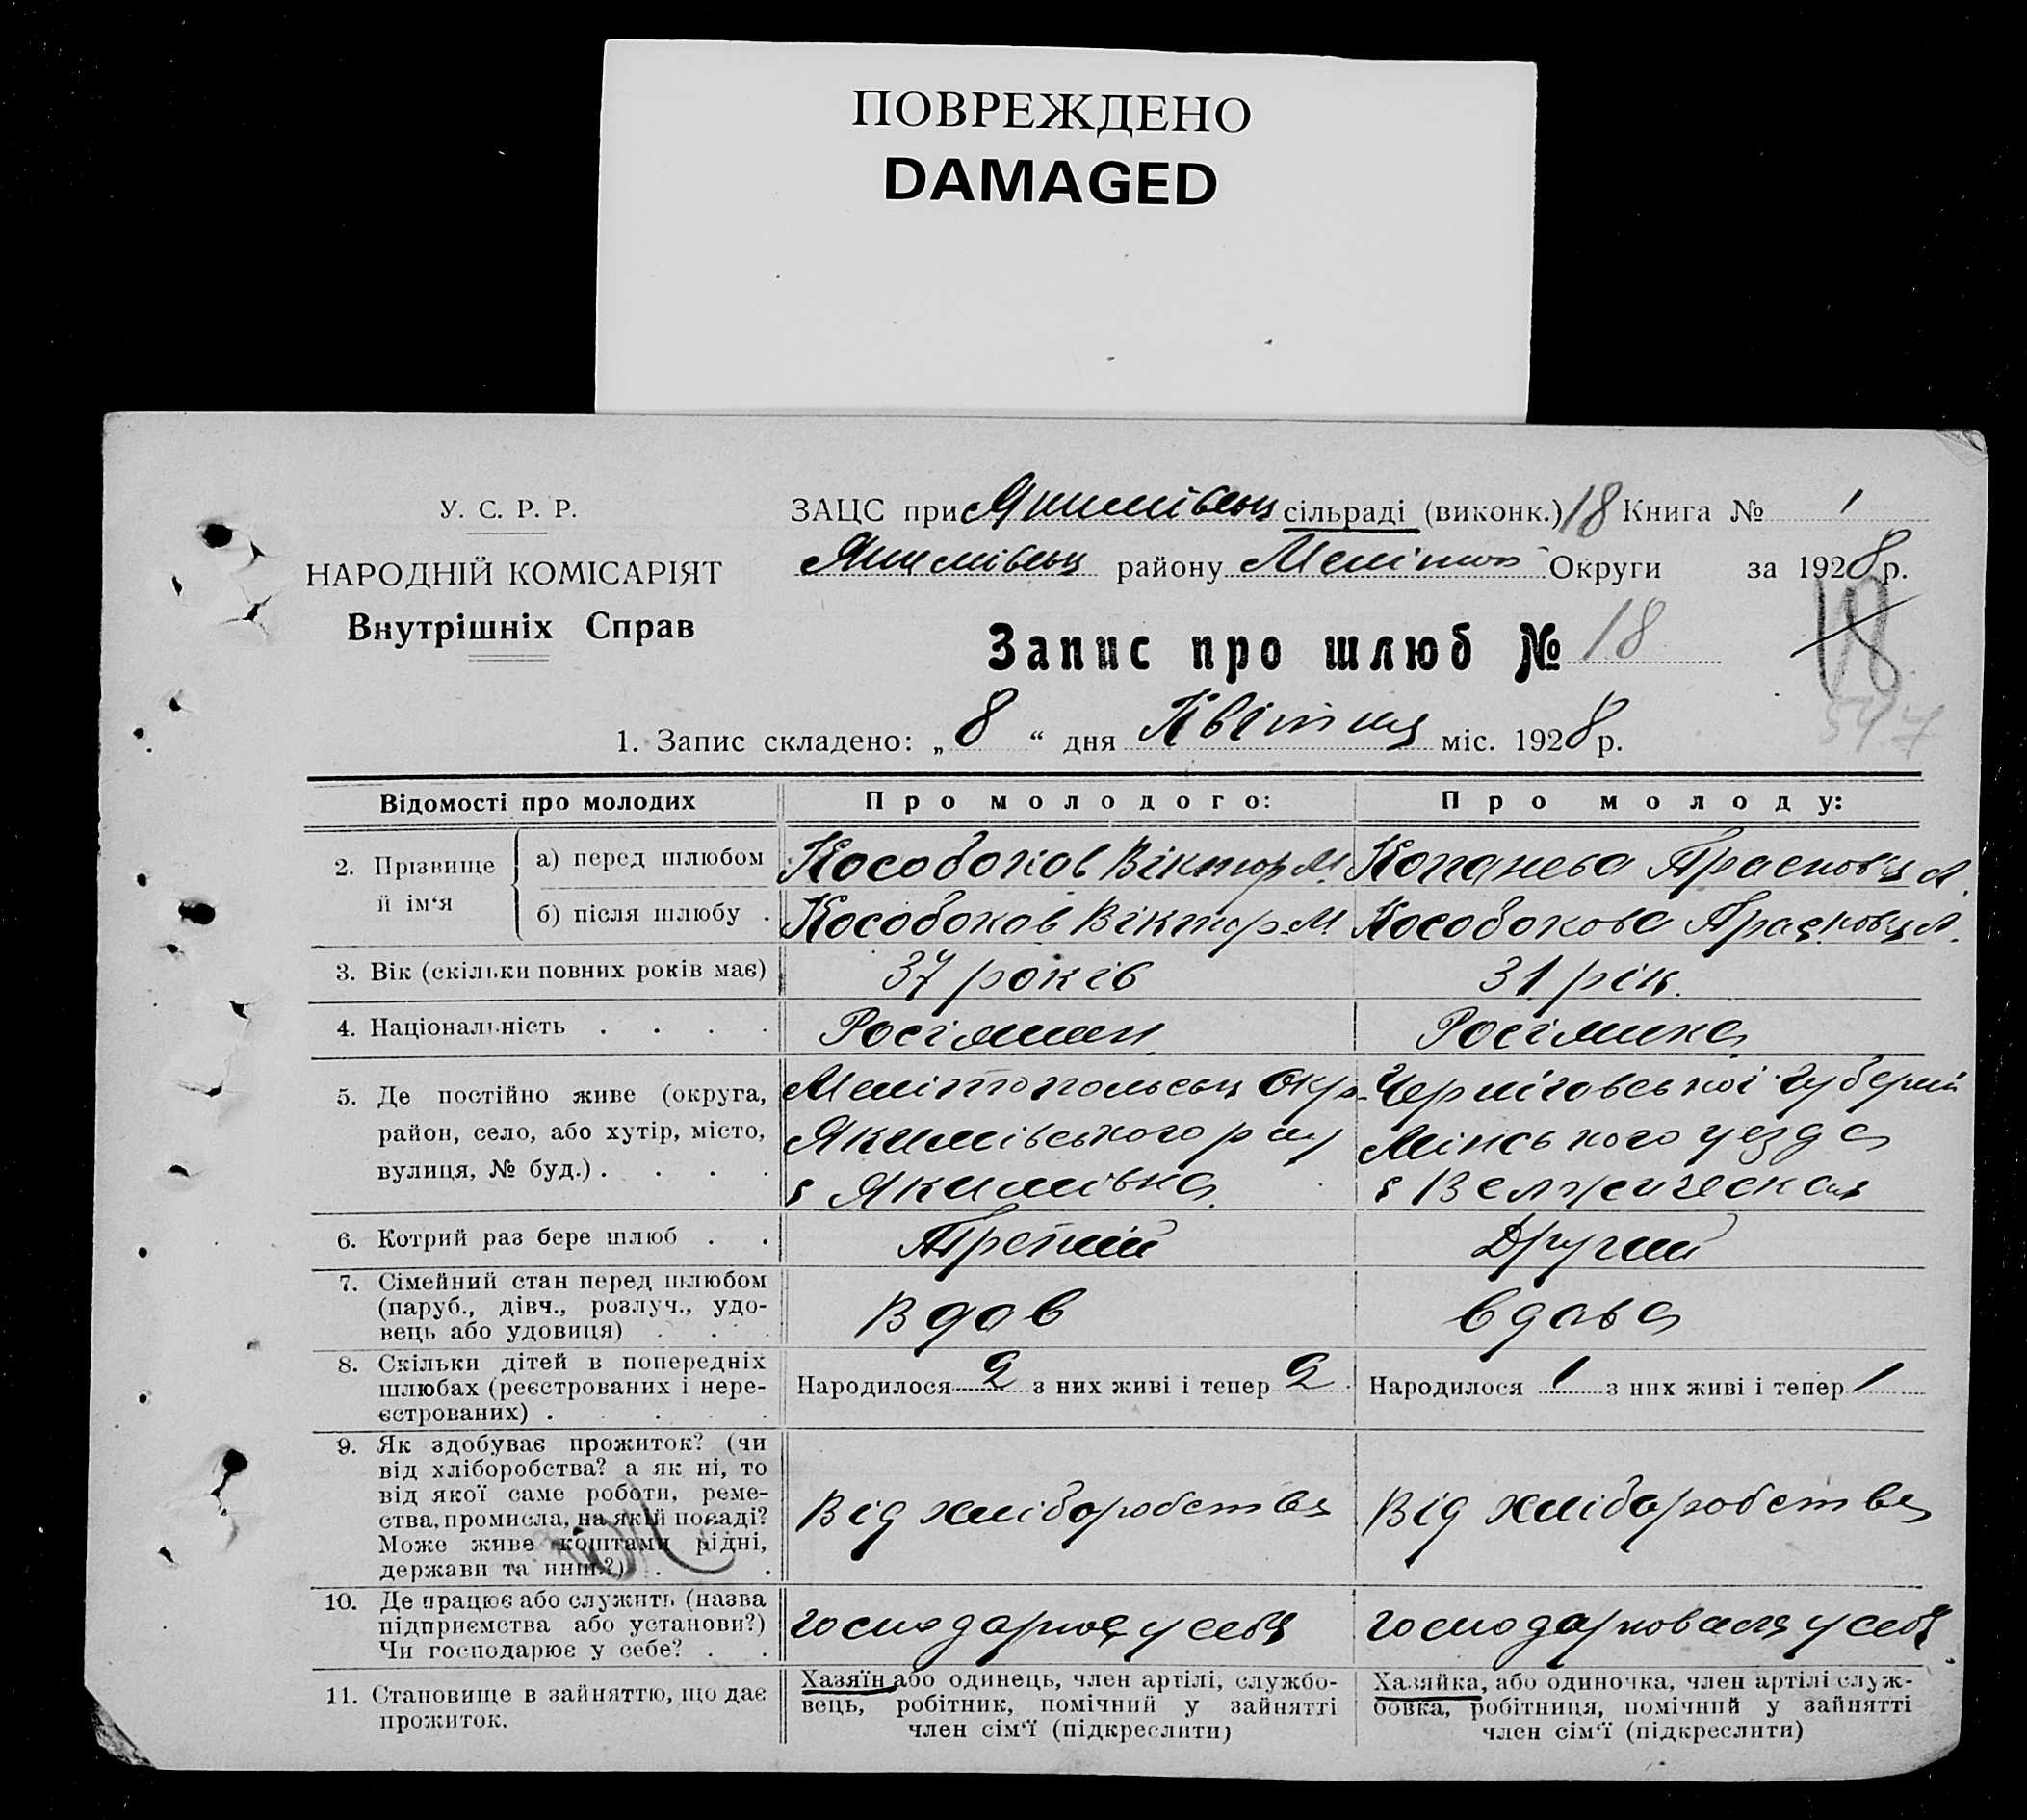 ПОВРЕЖДЕНО
DAMAGED
У. С. Р. Р.
НАРОДНІЙ КОМІСАРІЯТ
Внутрішніх Справ
ЗАЦС при Якимівськ сільраді (виконк.) 18 Книга № 1
Якимівськ району Меліտоп Округи за 1928 р.
Запис про шлюб № 18
18
547
1. Запис складено: „ 8 “ дня Квітня міс. 1928 р.
Відомості про молодих Про молодого: Про молоду:
2. Прізвище й ім‘я
а) перед шлюбом Кособоков Віктор М. Копанева Прасковья Л.
б) після шлюбу . Кособоков Віктор М. Кособокова Прасковья Л.
3. Вік (скільки повних років має) 37 років 31 рік.
4. Національність . . . . Росіянин Росіянка
5. Де постійно живе (округа, район, село, або хутір, місто, вулиця, № буд.) . . . .
Мелітопольськ Окр.
Якимівського р-ну
с Якимівка
Черніговської губерні
Мінського уезда
с
6. Котрий раз бере шлюб . . Третій Другий
7. Сімейний стан перед шлюбом
(паруб., дівч., розлуч., удо-
вець або удовиця) . . . Вдов вдова
8. Скільки дітей в попередніх
шлюбах (реєстрованих і нере-
єстрованих) . . . . .
Народилося 2 з них живі і тепер 2
Народилося 1 з них живі і тепер 1
9. Як здобуває прожиток? (чи
від хліборобства? а як ні, то
від якої саме роботи, реме-
ства, промисла, на якій посаді?
Може живе коштами рідні,
держави та инш?) . .
Від хліборобства
Від хліборобства
10. Де працює або служить (назва
підприємства або установи?)
Чи господарює у себе? . .
господарює у себя
господарювала у себя
11. Становище в зайняттю, що дає
прожиток.
Хазяїн або одинець, член артілі, службо-
вець, робітник, помічний у зайнятті
член сім‘ї (підкреслити)
Хазяйка, або одиночка, член артілі служ-
бовка, робітниця, помічний у зайнятті
член сім‘ї (підкреслити)